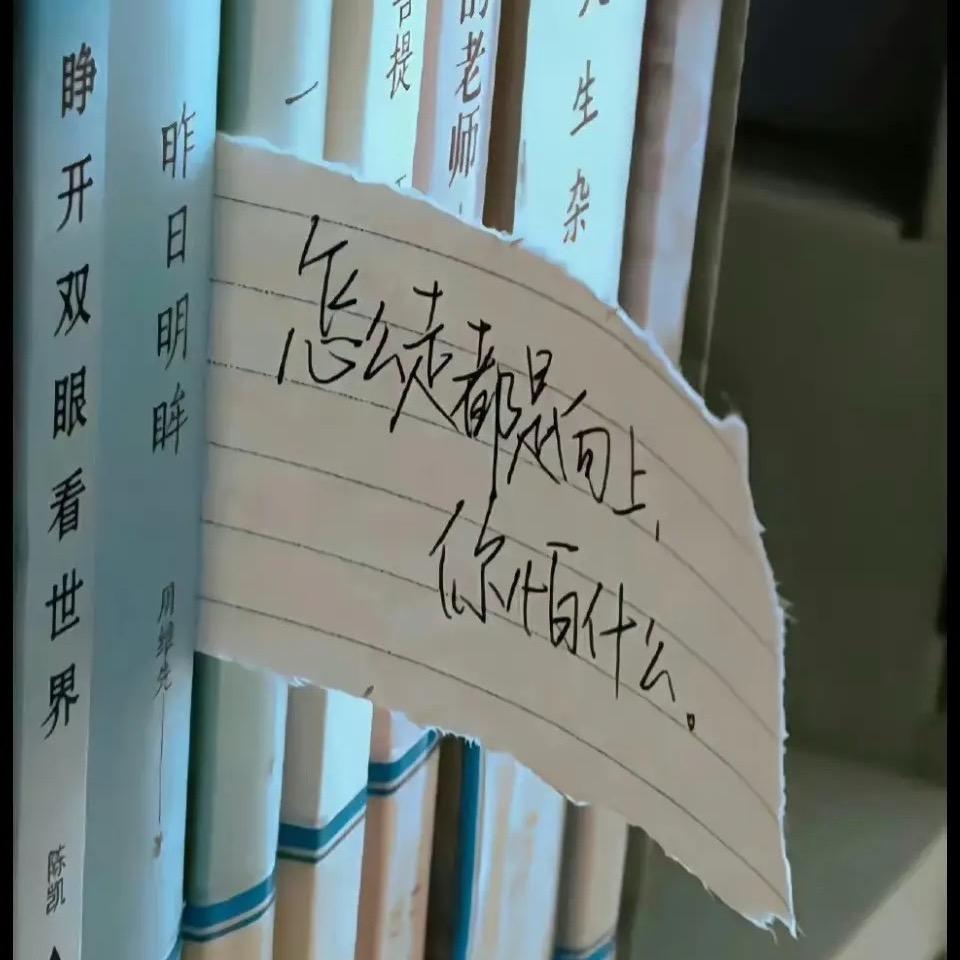 睁开双眼看世界
陈凯
昨日明眸
周维先
一
菩提
的老师
生杂
怎么走都是向上,
你怕什么。